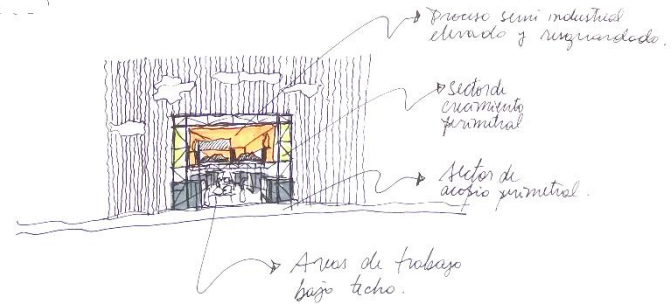 Proceso semi industrial
elevado y resguardado.
Sector de
crecimiento
perimetral
Sector de
acopio perimetral.
Areas de trabajo
bajo techo.